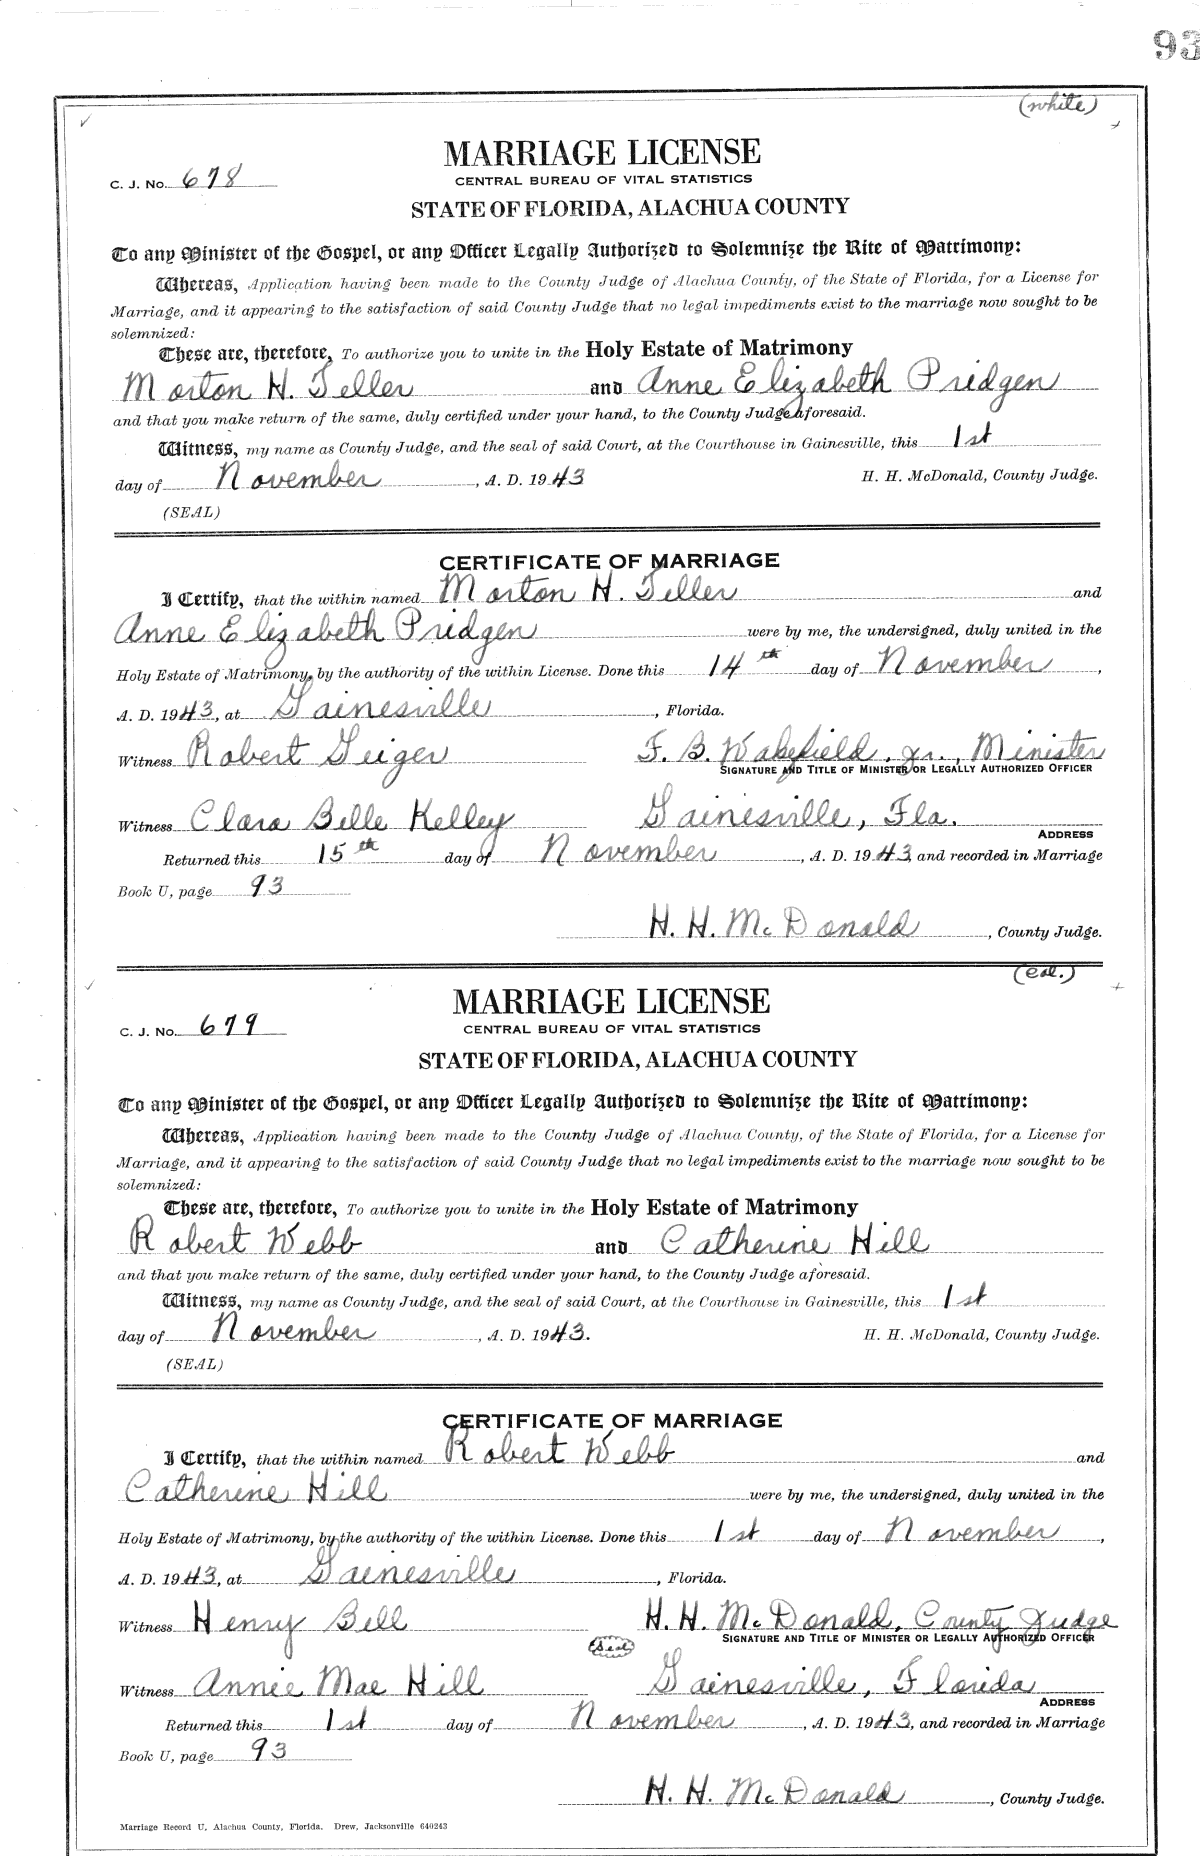 93
(white)
MARRIAGE LICENSE
C. J. No. 678
CENTRAL BUREAU OF VITAL STATISTICS
STATE OF FLORIDA, ALACHUA COUNTY
To any Minister of the Gospel, or any Officer Legally Authorized to Solemnize the Rite of Matrimony:
Whereas, Application having been made to the County Judge of Alachua County, of the State of Florida, for a License for
Marriage, and it appearing to the satisfaction of said County Judge that no legal impediments exist to the marriage now sought to be
solemnized:
These are, therefore, To authorize you to unite in the Holy Estate of Matrimony
Morton H. Teller and Anne Elizabeth Pridgen
and that you make return of the same, duly certified under your hand, to the County Judge aforesaid.
Witness, my name as County Judge, and the seal of said Court, at the Courthouse in Gainesville, this 1st
day of November, A. D. 1943 H. H. McDonald, County Judge.
(SEAL)
CERTIFICATE OF MARRIAGE
I Certify, that the within named Morton H. Teller and
Anne Elizabeth Pridgen were by me, the undersigned, duly united in the
Holy Estate of Matrimony, by the authority of the within License. Done this 14th day of November,
A. D. 1943, at Gainesville, Florida.
Witness Robert Geiger F. B. Wakefield, Jr., Minister
SIGNATURE AND TITLE OF MINISTER OR LEGALLY AUTHORIZED OFFICER
Witness Clara Belle Kelley Gainesville, Fla.
ADDRESS
Returned this 15th day of November, A. D. 1943, and recorded in Marriage
Book U, page 93
H. H. McDonald, County Judge.
(Col.)
MARRIAGE LICENSE
C. J. No. 679
CENTRAL BUREAU OF VITAL STATISTICS
STATE OF FLORIDA, ALACHUA COUNTY
To any Minister of the Gospel, or any Officer Legally Authorized to Solemnize the Rite of Matrimony:
Whereas, Application having been made to the County Judge of Alachua County, of the State of Florida, for a License for
Marriage, and it appearing to the satisfaction of said County Judge that no legal impediments exist to the marriage now sought to be
solemnized:
These are, therefore, To authorize you to unite in the Holy Estate of Matrimony
Robert Webb and Catherine Hill
and that you make return of the same, duly certified under your hand, to the County Judge aforesaid.
Witness, my name as County Judge, and the seal of said Court, at the Courthouse in Gainesville, this 1st
day of November, A. D. 1943. H. H. McDonald, County Judge.
(SEAL)
CERTIFICATE OF MARRIAGE
I Certify, that the within named Robert Webb and
Catherine Hill were by me, the undersigned, duly united in the
Holy Estate of Matrimony, by the authority of the within License. Done this 1st day of November,
A. D. 1943, at Gainesville, Florida.
Witness Henry Bell H. H. McDonald, County Judge
(Seal) SIGNATURE AND TITLE OF MINISTER OR LEGALLY AUTHORIZED OFFICER
Witness Annie Mae Hill Gainesville, Florida
ADDRESS
Returned this 1st day of November, A. D. 1943, and recorded in Marriage
Book U, page 93
H. H. McDonald, County Judge.
Marriage Record U, Alachua County, Florida. Drew, Jacksonville 640243